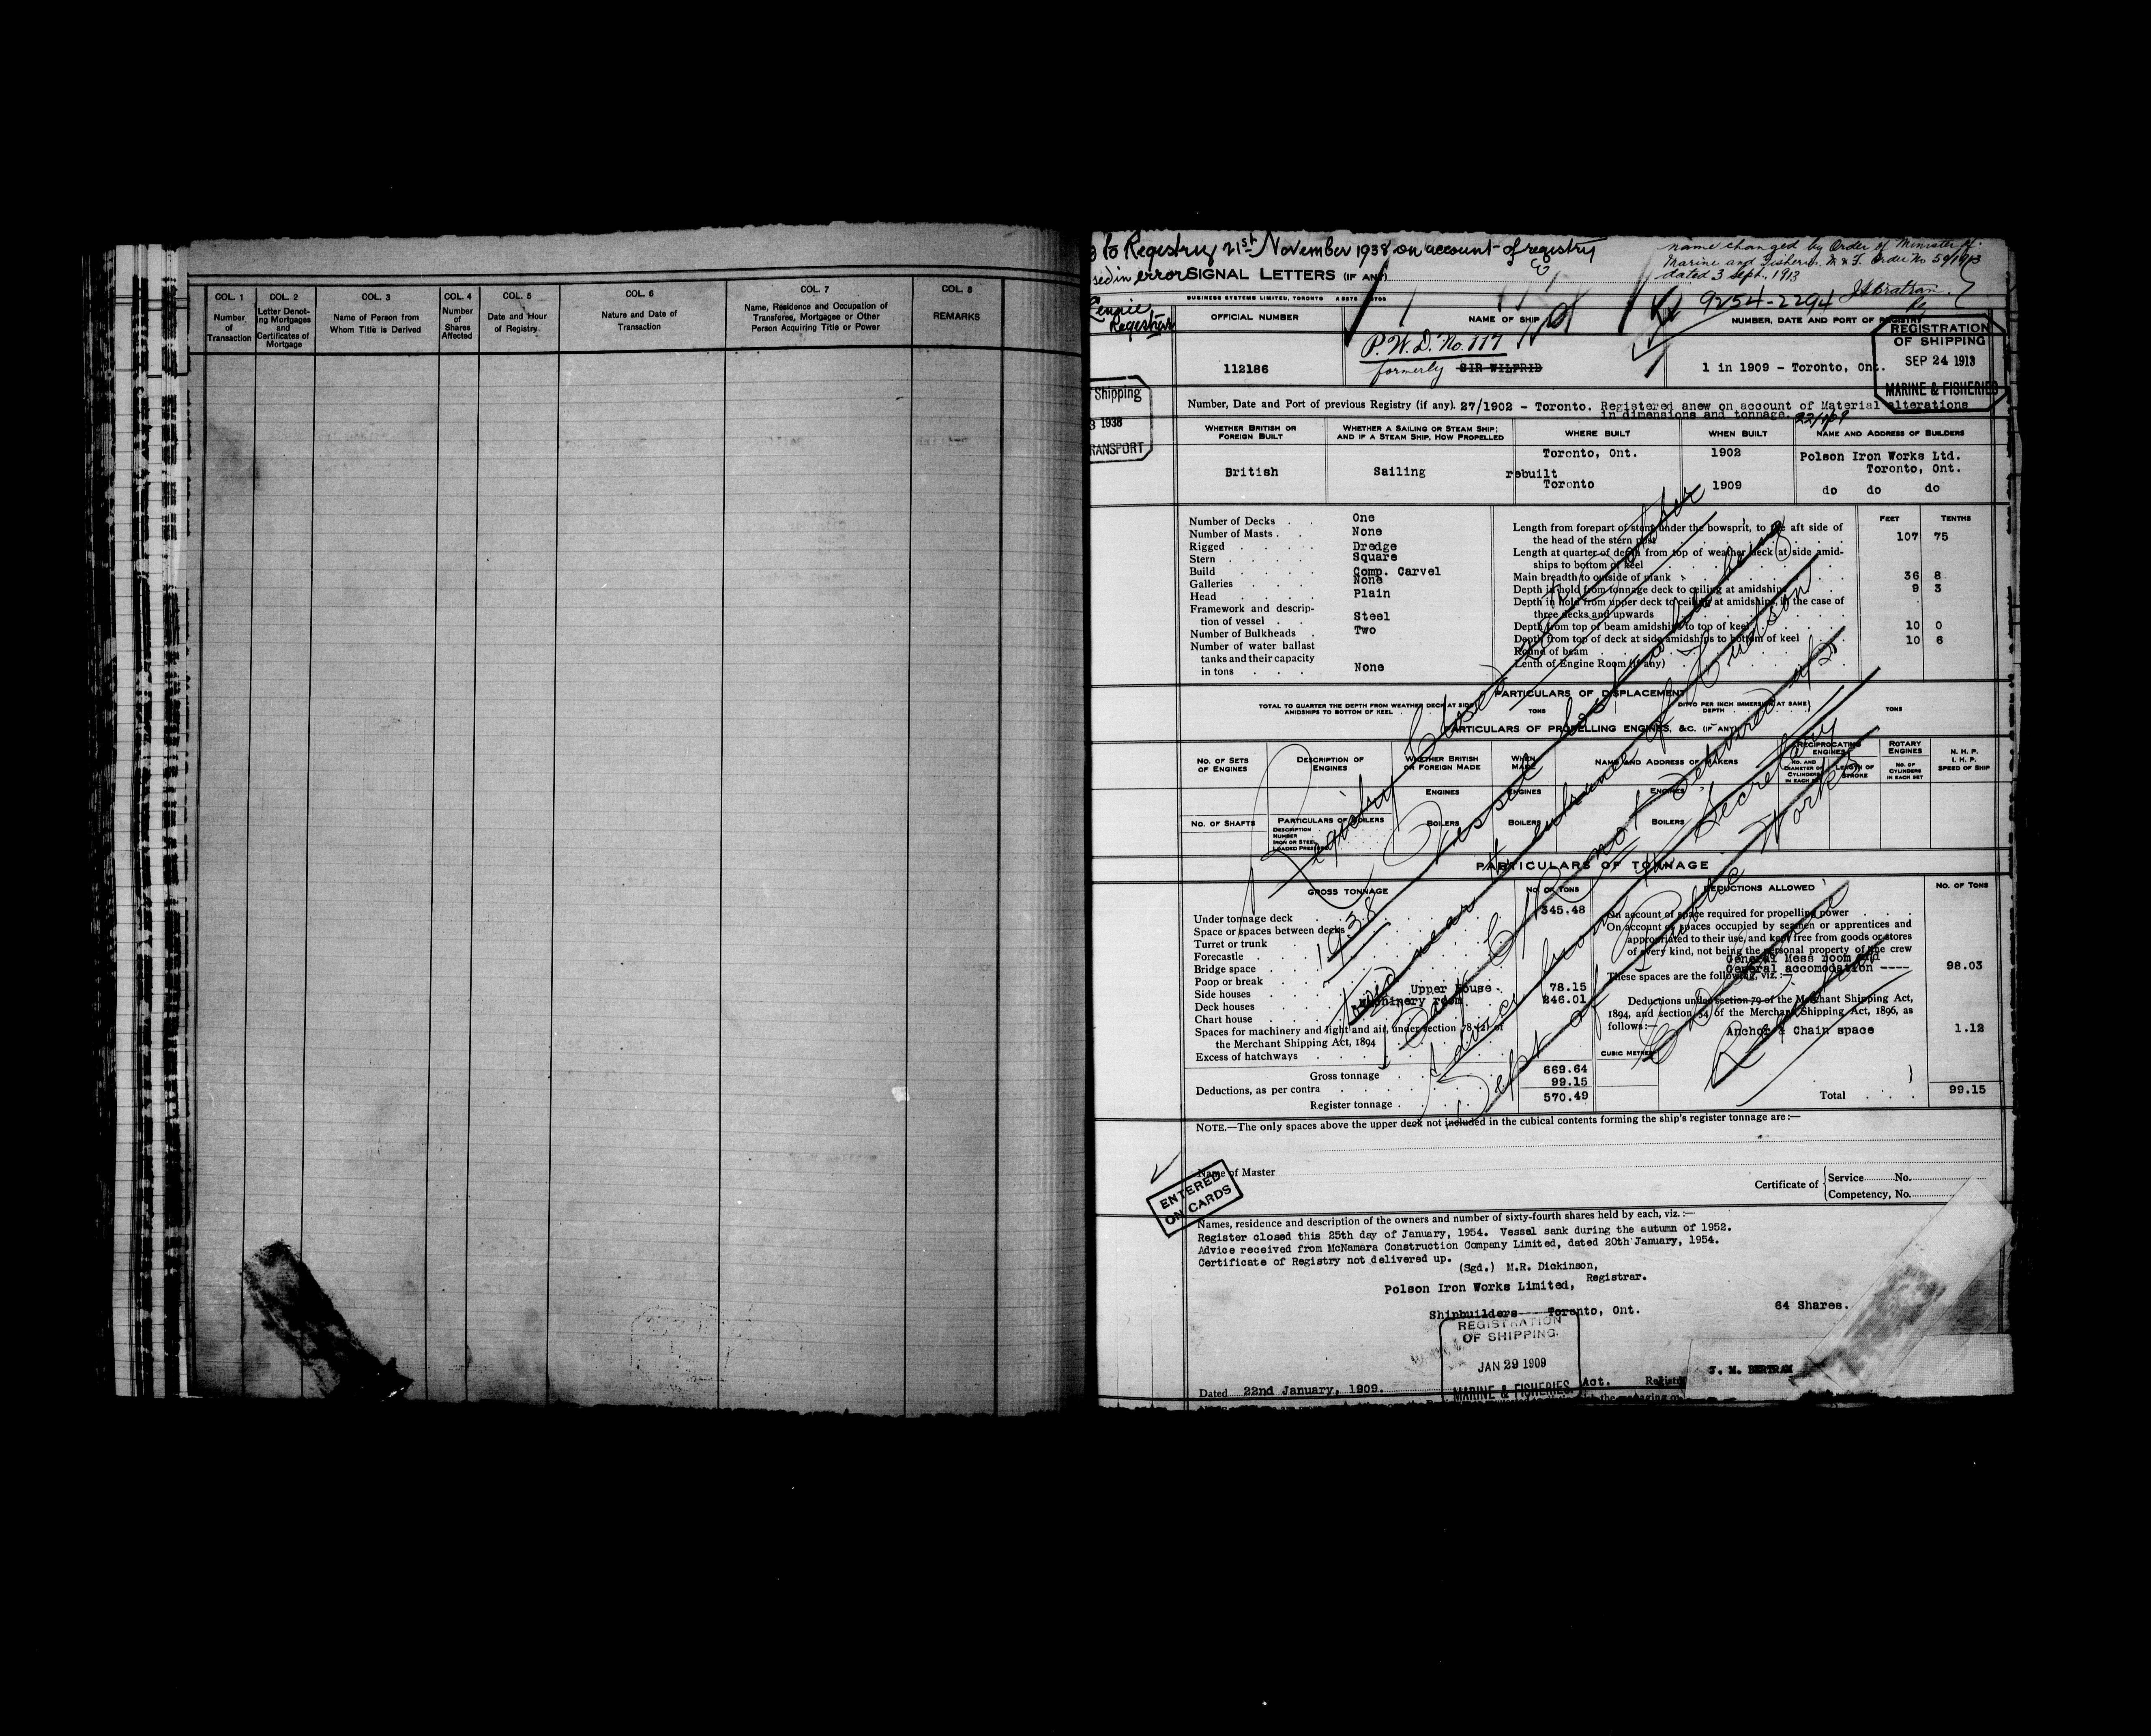 COL. 1
Number
of
Transaction
COL. 2
Letter Denot-
ing Mortgages
and
Certificates of
Mortgage
COL. 3
Name of Person from
Whom Title is Derived
COL. 4
Number
of
Shares
Affected
COL. 5
Date and Hour
of Registry
COL. 6
Nature and Date of
Transaction
COL. 7
Name, Residence and Occupation of
Transferee, Mortgagee or Other
Person Acquiring Title or Power
COL. 8
REMARKS
to Registry 21st November 1938 on account of registry
in error
Registrar
name changed by Order of Minister of
Marine and Fisheries. M & F. Order No 59/1913
dated 3 Sept., 1913
SIGNAL LETTERS (IF ANY)
BUSINESS SYSTEMS LIMITED, TORONTO
9254-2294
OFFICIAL NUMBER
NAME OF SHIP
NUMBER, DATE AND PORT OF REGISTRY
REGISTRATION
OF SHIPPING
SEP 24 1913
MARINE & FISHERIES
112186
P.W.D. No. 117
formerly SIR WILFRID
1 in 1909 - Toronto, Ont.
Shipping
1938
TRANSPORT
Number, Date and Port of previous Registry (if any). 27/1902 - Toronto. Registered anew on account of Material alterations
in dimensions and tonnage.
WHETHER BRITISH OR
FOREIGN BUILT
WHETHER A SAILING OR STEAM SHIP;
AND IF A STEAM SHIP, HOW PROPELLED
WHERE BUILT
WHEN BUILT
NAME AND ADDRESS OF BUILDERS
British
Sailing
Toronto, Ont.
rebuilt
Toronto
1902
1909
Polson Iron Works Ltd.
Toronto, Ont.
do do do
Number of Decks . . One
Number of Masts . . None
Rigged . . . . . Dredge
Stern . . . . . Square
Build . . . . . Comp. Carvel
Galleries . . . . None
Head . . . . . Plain
Framework and descrip-
tion of vessel . . . Steel
Number of Bulkheads . Two
Number of water ballast
tanks and their capacity
in tons . . . None
FEET TENTHS
Length from forepart of stem under the bowsprit, to the aft side of
the head of the stern post 107 75
Length at quarter of depth from top of weather deck at side amid-
ships to bottom of keel
Main breadth to outside of plank 36 8
Depth in hold from tonnage deck to ceiling at amidships 9 3
Depth in hold from upper deck to ceiling at amidships, in the case of
three decks and upwards
Depth from top of beam amidships to top of keel 10 0
Depth from top of deck at side amidships to bottom of keel 10 6
Round of beam
Lenth of Engine Room (if any)
PARTICULARS OF DISPLACEMENT
TOTAL TO QUARTER THE DEPTH FROM WEATHER DECK AT SIDE
AMIDSHIPS TO BOTTOM OF KEEL TONS
DITTO PER INCH IMMERSION AT SAME
DEPTH TONS
PARTICULARS OF PROPELLING ENGINES, &C. (IF ANY)
NO. OF SETS
OF ENGINES
DESCRIPTION OF
ENGINES
WHETHER BRITISH
OR FOREIGN MADE
WHEN
MADE
NAME AND ADDRESS OF MAKERS
RECIPROCATING
ENGINES
NO. AND
DIAMETER OF
CYLINDERS
IN EACH SET
LENGTH OF
STROKE
ROTARY
ENGINES
NO. OF
CYLINDERS
IN EACH SET
N. H. P.
I. H. P.
SPEED OF SHIP
ENGINES
ENGINES
ENGINES
NO. OF SHAFTS
PARTICULARS OF BOILERS
DESCRIPTION
NUMBER
IRON OR STEEL
LOADED PRESSURE
BOILERS
BOILERS
BOILERS
PARTICULARS OF TONNAGE
GROSS TONNAGE
NO. OF TONS
DEDUCTIONS ALLOWED
NO. OF TONS
Under tonnage deck 345.48
Space or spaces between decks
Turret or trunk
Forecastle
Bridge space
Poop or break
Side houses Upper House 78.15
Deck houses Machinery room 246.01
Chart house
Spaces for machinery and light and air, under section 78 (2) of
the Merchant Shipping Act, 1894
Excess of hatchways
Gross tonnage 669.64
Deductions, as per contra 99.15
Register tonnage 570.49
On account of space required for propelling power
On account of spaces occupied by seamen or apprentices and
appropriated to their use, and kept free from goods or stores
of every kind, not being the personal property of the crew
General Mess room and
General accomodation ----- 98.03
These spaces are the following, viz.:—
Deductions under section 79 of the Merchant Shipping Act,
1894, and section 54 of the Merchant Shipping Act, 1896, as
follows:—
Anchor & Chain space 1.12
CUBIC METRES
Total 99.15
Registry Closed
1938
Vessel
near the entrance of
C/R not returned
Advice from Secretary
Dept of Public Works
Registrar
NOTE.—The only spaces above the upper deck not included in the cubical contents forming the ship's register tonnage are:—
Name of Master
ENTERED
ON CARDS
Certificate of
Service No.
Competency, No.
Names, residence and description of the owners and number of sixty-fourth shares held by each, viz.:—
Register closed this 25th day of January, 1954. Vessel sank during the autumn of 1952.
Advice received from McNamara Construction Company Limited, dated 20th January, 1954.
Certificate of Registry not delivered up.
(Sgd.) M.R. Dickinson,
Registrar.
Polson Iron Works Limited,
Shipbuilders----Toronto, Ont.
64 Shares.
REGISTRATION
OF SHIPPING.
JAN 29 1909
MARINE & FISHERIES.
Act.
J. M. BERTRAM
Dated 22nd January, 1909.